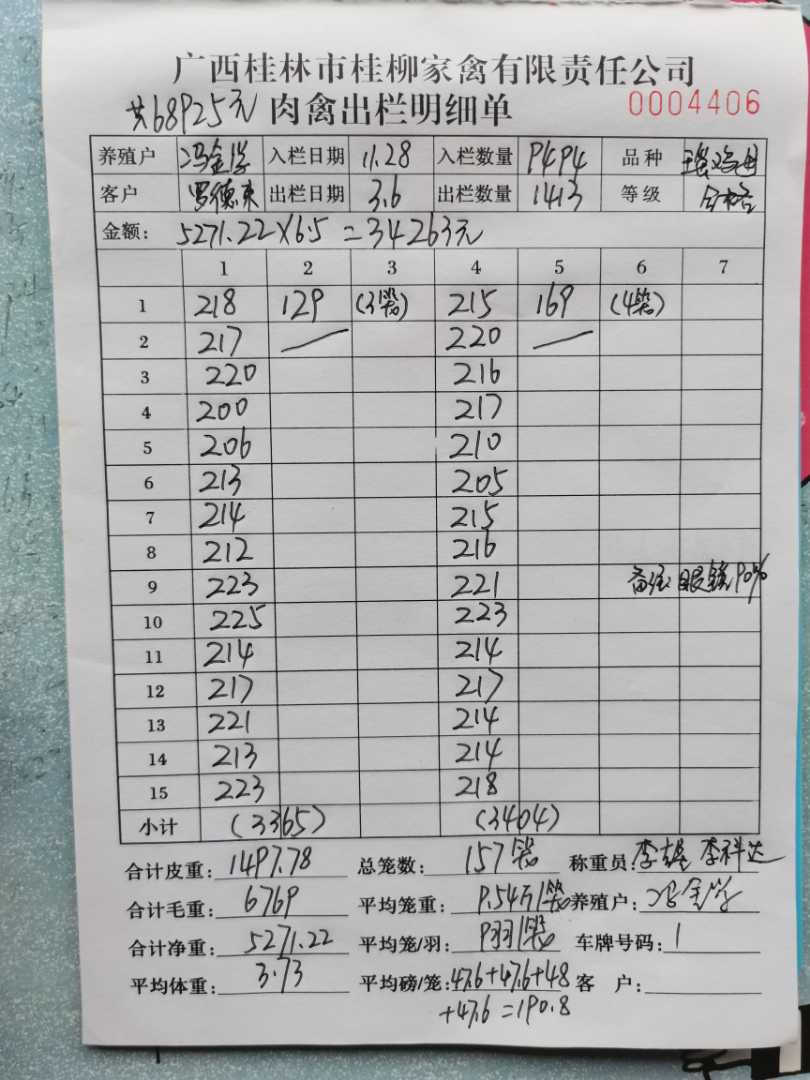 广西桂林市桂柳家禽有限责任公司
共68925元 肉禽出栏明细单 0004406
养殖户 冯金学 入栏日期 11.28 入栏数量 9494 品种
客户 罗德来 出栏日期 3.6 出栏数量 1413 等级 合格
金额: 5271.22×6.5=34263元
1 2 3 4 5 6 7
1 218 129 (3笼) 215 169 (4笼)
2 217 220
3 220 216
4 200 217
5 206 210
6 213 205
7 214 215
8 212 216
9 223 221 备注: 眼镜90%
10 225 223
11 214 214
12 217 217
13 221 214
14 213 214
15 223 218
小计 (3365) (3404)
合计皮重: 1497.78 总笼数: 157笼 称重员: 李雄 李科达
合计毛重: 6769 平均笼重: 9.54斤/笼 养殖户: 冯金学
合计净重: 5271.22 平均笼/羽: 9羽/笼 车牌号码: 1
平均体重: 3.73 平均磅/笼: 47.6+47.6+48 客 户:
+47.6=190.8